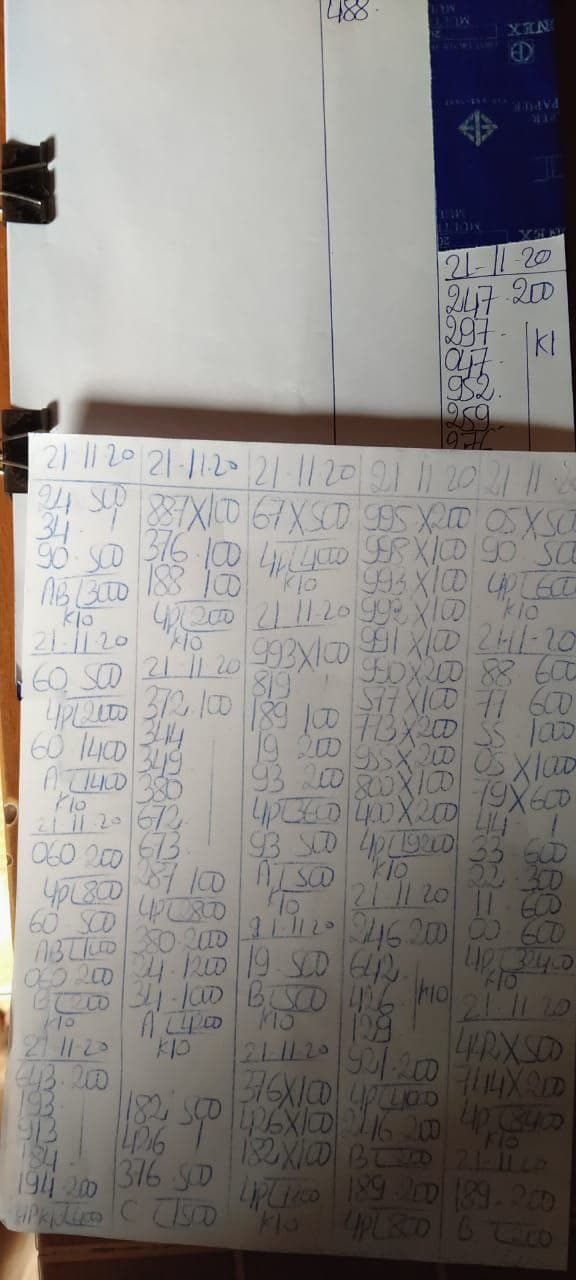 488.
21-11-20
247.200
297.
047.
K1
952.
259.
21 11 20
24 500
34. 1
90.500
AB 3000
K10
21.11.20
60 500
4P 2000
60 1400
A 1400
K10
21 11 20
060 200
4P 800
60 500
060 200
B 200
K10
21-11-20
643.200
193
913
184
194.200
21-11-20
887X100
376.100
188 100
4P 200
K10
21 11 20
372.100
344
349
380
672
673
287 100
4P 800
380.2000
24.1200
34.1000
A 4200
K10
182 500
426 1
376.500
C 1500
21-11 20
67X500
4P 4000
K10
21 11-20
993X100
819
189 100
19 200
93 200
4P 3600
93 500
A 500
K10
19.500
B 500
K10
21 11 20
376X100
426X100
182X100
K10
21 11 20
995X200
998X100
993X100
992X100
991X100
990X200
577X100
773X200
955X200
800X100
400X200
4P 19200
K10
21 11 20
246.200
642.
426
K10
129
921.200
246.200
B 200
189.200
4P 800
21 11
90 500
4P 600
K10
21-11-20
88 600
77 600
55 1000
05X1000
79X600
44 1
33 600
22.300
11.600
00 600
4P 32400
K10
21 11 20
442X500
744X200
4P 3400
K10
21-11-20
189.200
B 200